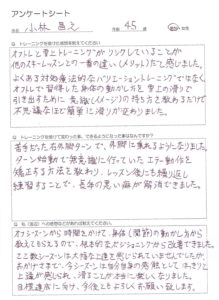 アンケートシート
氏名 小林 昌之 年齢 45 歳 男・女
Q. トレーニングを受けた感想を教えてください
オフトレと雪上トレーニングがリンクしていることが
他のスキーレッスンとの一番の違い、(メリット)だと感じました。
よくある対処療法的なバリエーショントレーニングではなく、
オフトレで習得した身体の動かし方を雪上の滑りで
引き出すために意識(イメージ)の持ち方を教わるだけで
不思議なほど簡単に滑りに現れました。
苦手だった右外脚ターンで、外脚に乗れるようになりました。
ターン始動で無意識に行っていたエラー動作を
矯正する方法を教わり、レッスン後にも繰り返し
練習することで、長年の悪い癖が解消できました。
オフシーズンから時間をかけて、身体(関節)の動かし方から
教えてもらえるので、根本的なポジショニングから改善できました。
ここ数シーズンは大幅な上達を感じられていませんでしたが、
おかげさまで、今シーズンは自分自身の感覚としてはっきりと
上達が感じられ、滑ることが本当に楽しくなりました。
目標達成に向け、今後ともよろしくお願い致します。